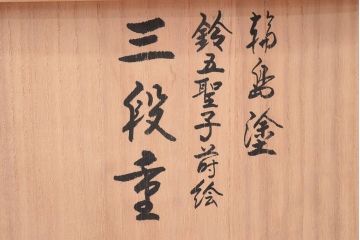 輪島塗
鈴五聖子蒔絵
三段重